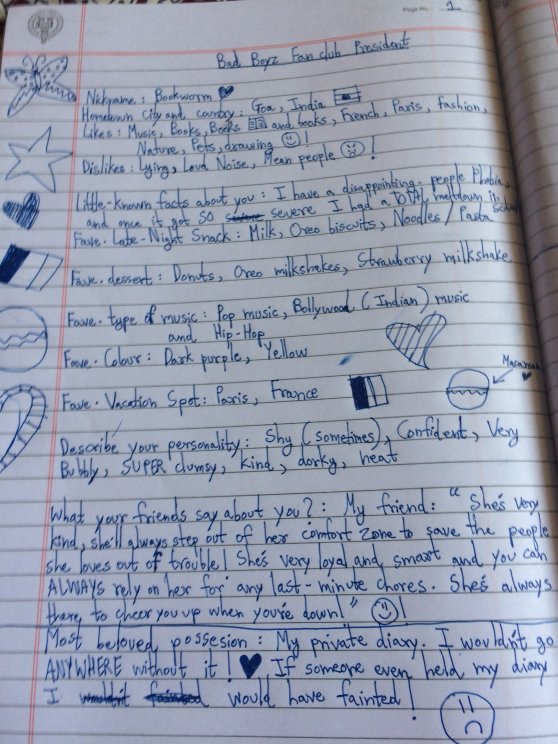 Page No.: 1
Bad Boyz Fan club President
Nickname : Bookworm
Hometown City and country : Goa, India
Likes : Music, Books, Books and books, French, Paris, fashion,
Nature, Pets, drawing !
Dislikes : Lying, Loud Noise, Mean people !
Little-known facts about you : I have a disappointing-people Phobia,
and once it got SO severe I had a TOTAL meltdown in school
Fave. Late-Night Snack : Milk, Oreo biscuits, Noodles / Pasta
Fave. dessert : Donuts, Oreo milkshakes, Strawberry milkshake
Fave. type of music : Pop music, Bollywood (Indian) music
and Hip-Hop
Fave. Colour : Dark purple, Yellow
Macaroon
Fave. Vacation Spot : Paris, France
Describe your personality : Shy (sometimes), Confident, Very
Bubbly, SUPER clumsy, kind, dorky, neat
What your friends say about you? : My friend : "She's very
kind, she'll always step out of her comfort zone to save the people
she loves out of trouble! She's very loyal and smart and you can
ALWAYS rely on her for any last-minute chores. She's always
there to cheer you up when you're down!" !
Most beloved possesion : My private diary. I wouldn't go
ANYWHERE without it! If someone even held my diary
I would have fainted!